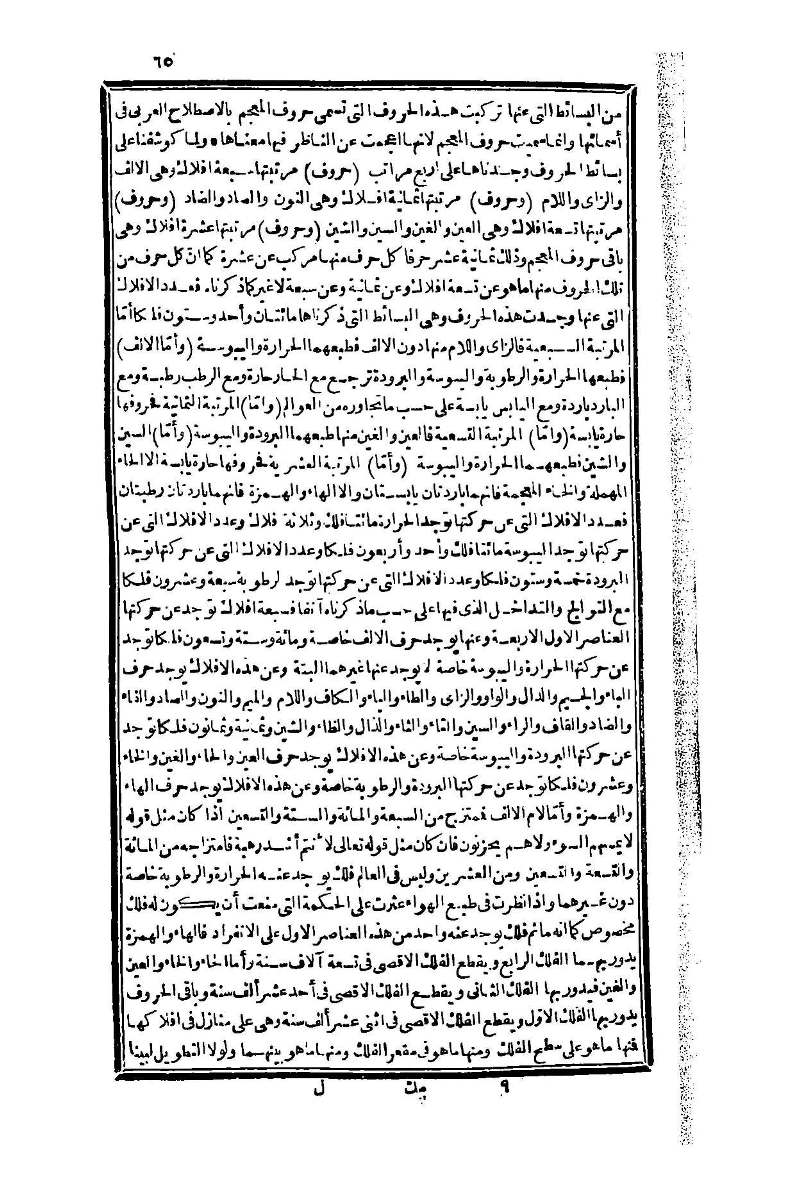 ٦٥
من البسائط التى عنها تركبت هذه الحروف التى تسمى حروف المعجم بالاصطلاح العربى فى
أسمائها وانما سميت حروف المعجم لانها عجمت عن الناظر فيها معناها ولما كوشفنا على
بسائط الحروف وجدناها على اربع مراتب (حروف) مرتبتها سبعة افلاك وهى الالف
والزاى واللام (وحروف) مرتبتها ثمانية افلاك وهى النون والصاد والضاد (وحروف)
مرتبتها تسعة افلاك وهى العين والغين والسين والشين (وحروف) مرتبتها عشرة افلاك وهى
باقى حروف المعجم وذلك ثمانية عشر حرفا كل حرف منها مركب عن عشرة كما ان كل حرف من
تلك الحروف منها ما هو عن تسعة افلاك وعن ثمانية وعن سبعة لا غير كما ذكرناه فعدد الافلاك
التى عنها وجدت هذه الحروف وهى البسائط التى ذكرناها مائتان وأحد وستون فلكا أمّا
المرتبة السبعية فالزاى واللام منها دون الالف فطبعهما الحرارة واليبوسة (وأمّا الالف)
فطبعها الحرارة والرطوبة واليبوسة والبرودة ترجع مع الحار حارة ومع الرطب رطبة ومع
البارد باردة ومع اليابس يابسة على حسب ما تجاوره من العوالم (وامّا) المرتبة الثمانية فحروفها
حارة يابسة (وامّا) المرتبة التسعية فالعين والغين منها طبعهما البرودة واليبوسة (وأمّا) السين
والشين فطبعهما الحرارة واليبوسة (وأمّا) المرتبة العشرية فحروفها حارة يابسة الا الحاء
المهملة والخاء المعجمة فانهما باردتان يابستان والا الهاء والهمزة فانهما باردتان رطبتان
فعدد الافلاك التى عن حركتها توجد الحرارة مائتا فلك وثلاثة افلاك وعدد الافلاك التى عن
حركتها توجد اليبوسة مائتا فلك وأحد وأربعون فلكا وعدد الافلاك التى عن حركتها توجد
البرودة خمسة وستون فلكا وعدد الافلاك التى عن حركتها توجد لرطوبة سبعة وعشرون فلكا
مع التوالج والتداخل الذى فيها على حسب ما ذكرناه آنفا فسبعة افلاك توجد عن حركتها
العناصر الاول الاربعة وعنها يوجد حرف الالف خاصة ومائة وستة وتسعون فلكا توجد
عن حركتها الحرارة واليبوسة خاصة لا يوجد عنها غيرهما البتة وعن هذه الافلاك يوجد حرف
الباء والجسيم والدال والواو والزاى والطاء والياء والكاف واللام والميم والنون والصاد والفاء
والضاد والقاف والراء والسين والتاء والثاء والذال والظاء والشين وثمانية وثمانون فلكا توجد
عن حركتها البرودة واليبوسة خاصة وعن هذه الافلاك يوجد حرف العين والحاء والغين والخاء
وعشرون فلكا توجد عن حركتها البرودة والرطوبة خاصة وعن هذه الافلاك يوجد حرف الهاء
والهمزة وأمّا لام الالف فممتزج من السبعة والمائة والستة والتسعين اذا كان مثل قوله
لا يمسهم السوء ولا هم يحزنون فان كان مثل قوله تعالى لأنتم أشد رهبة فامتزاجه من المائة
والتسعة والتسعين ومن العشرين وليس فى العالم فلك يوجد عنه الحرارة والرطوبة خاصة
دون غيرهما واذا نظرت فى طبع الهواء عثرت على الحكمة التى منعت أن يكون له فلك
مخصوص كما انه ما ثم فلك يوجد عنه واحد من هذه العناصر الاول على الانفراد فالهاء والهمزة
يدور بهما الفلك الرابع ويقطع الفلك الاقصى فى تسعة آلاف سنة وأما الحاء والخاء والعين
والغين فيدور بها الفلك الثانى ويقطع الفلك الاقصى فى أحد عشر ألف سنة وباقى الحروف
يدور بها الفلك الاول ويقطع الفلك الاقصى فى اثنى عشر ألف سنة وهى على منازل فى افلاكها
فمنها ما هو على سطح الفلك ومنها ما هو فى مقعر الفلك ومنها ما هو بينهما ولولا التطويل لبينا
٩ ل